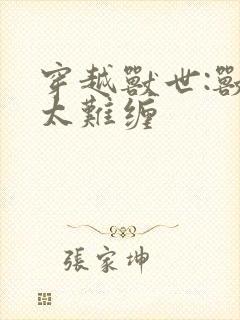 穿越獸世:獸
太難缠
張家坤